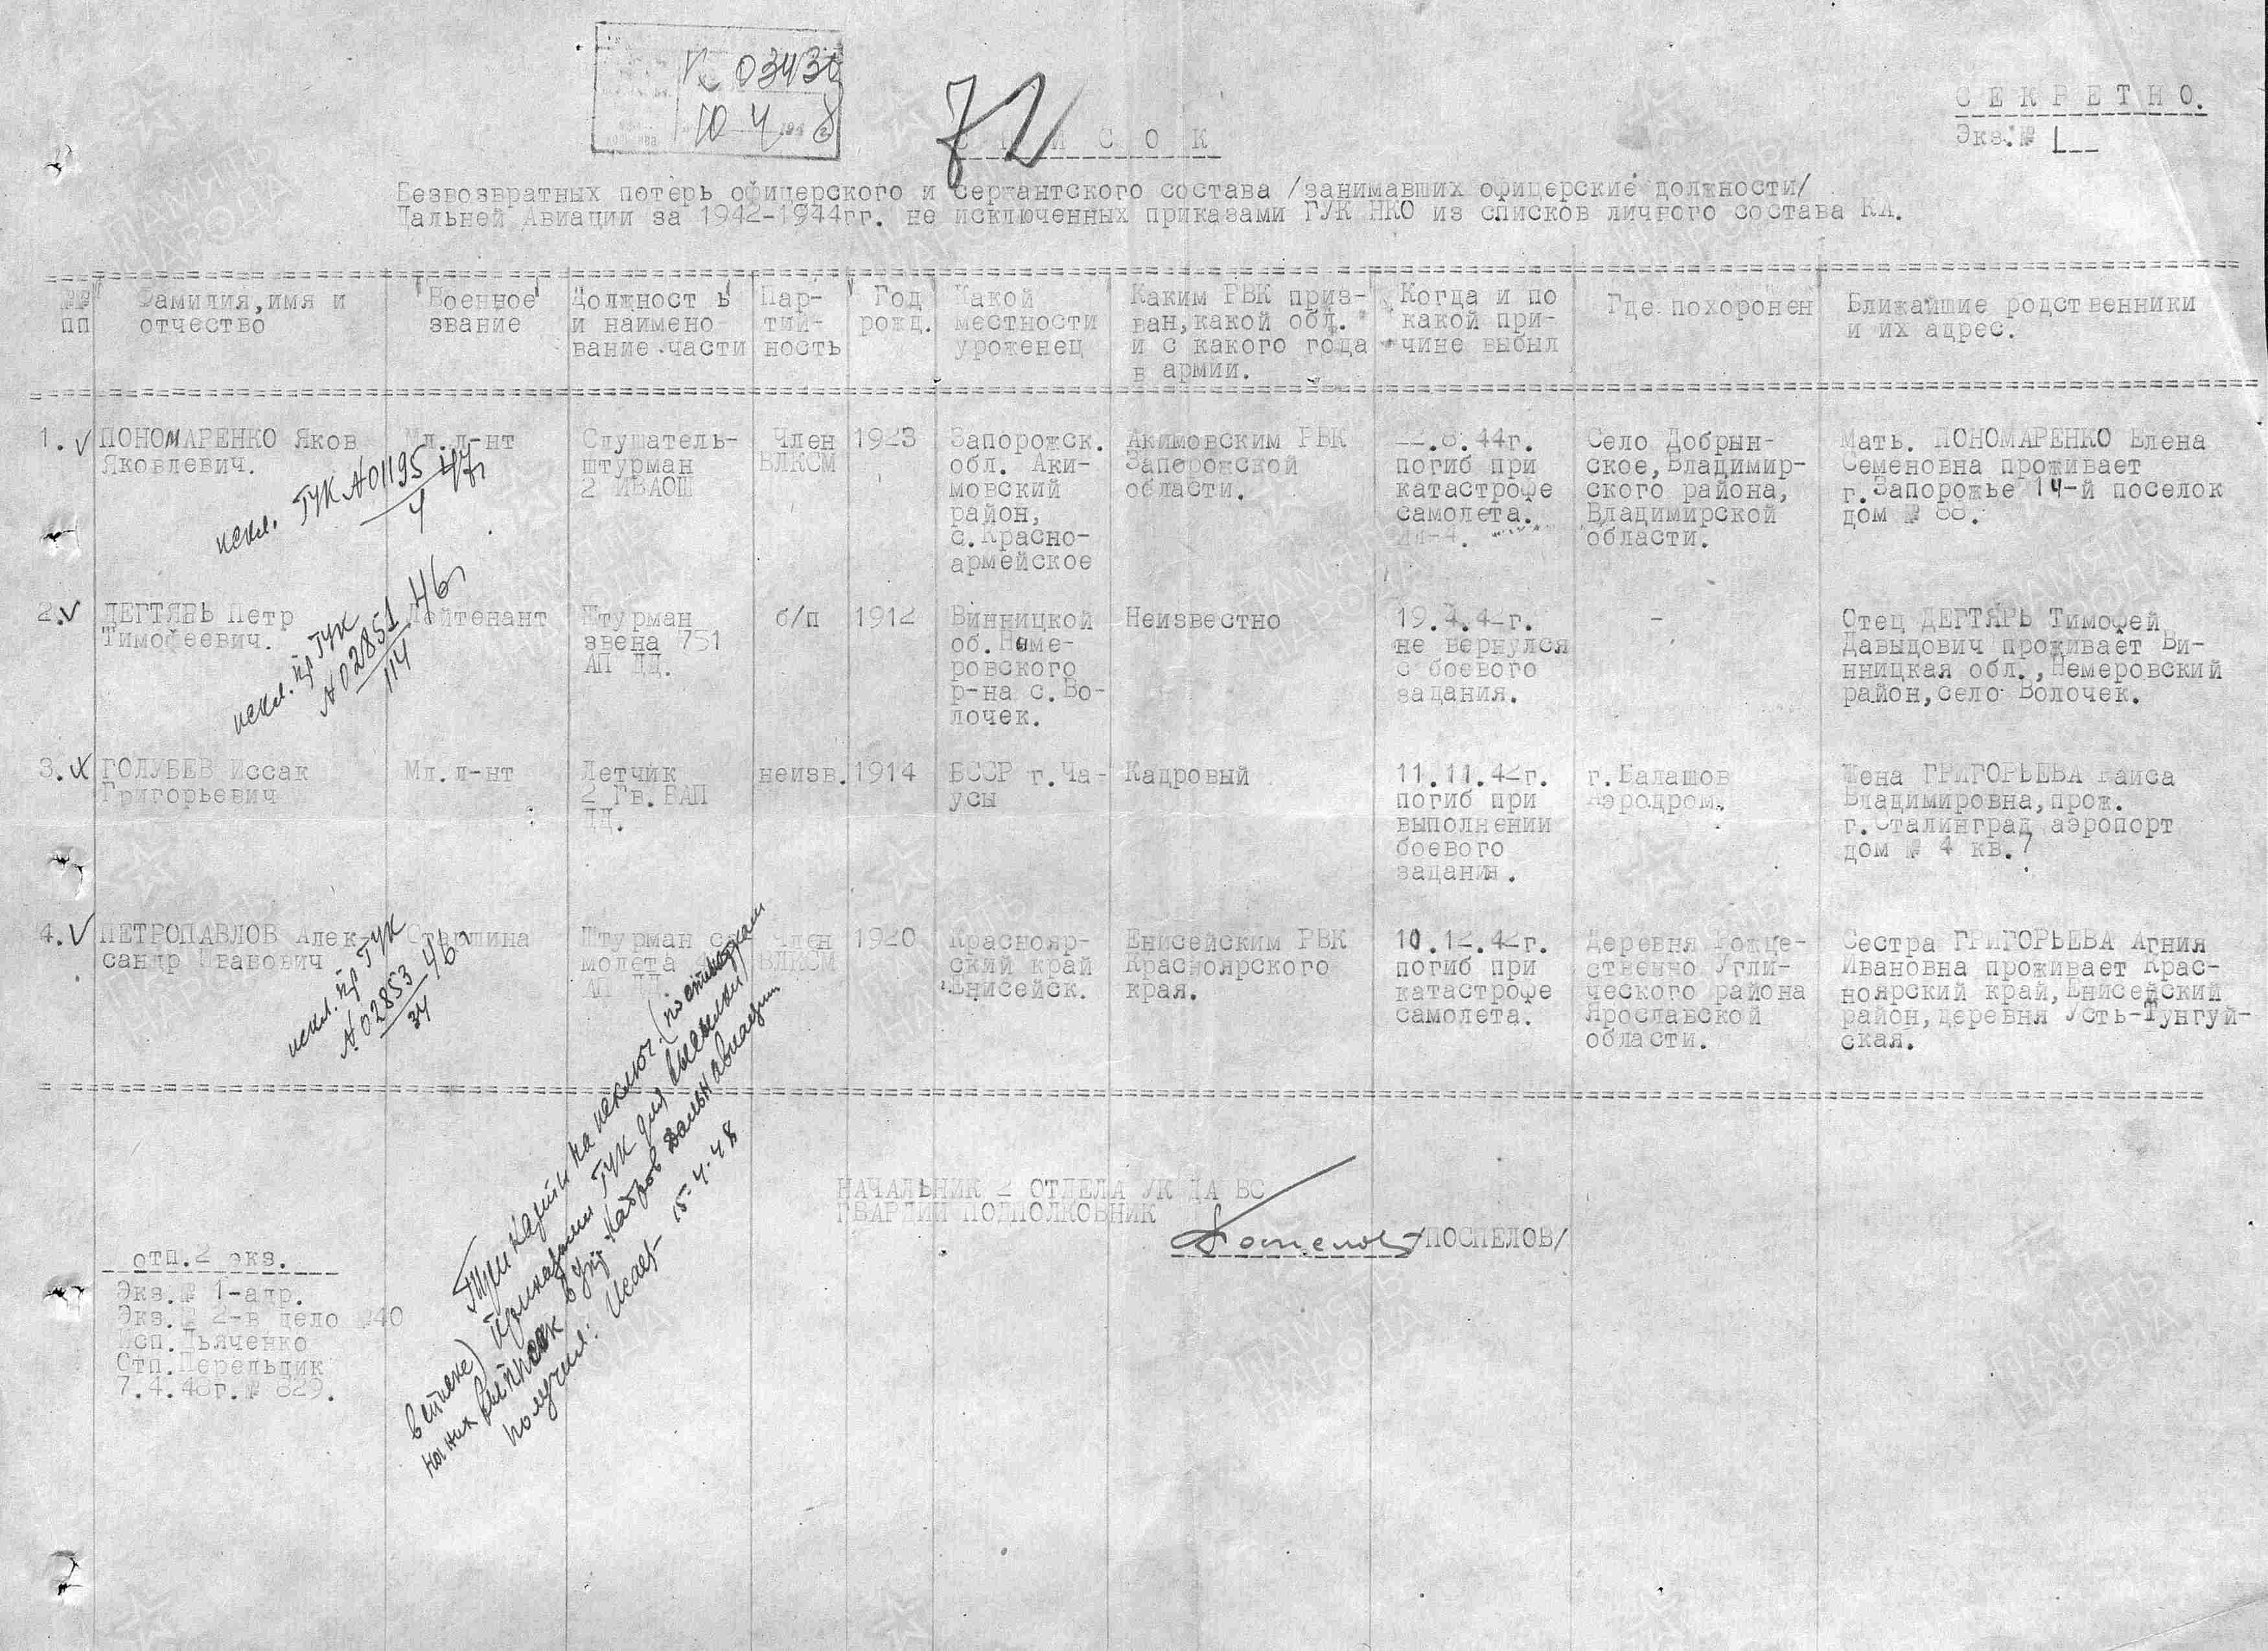 К 0343
10 4 1948
72
СПИСОК
СЕКРЕТНО.
Экз.№ 1
Безвозвратных потерь офицерского и сержантского состава /занимавших офицерские должности/
Дальней Авиации за 1942-1944гг. не исключенных приказами ГУК НКО из списков личного состава КА.
№№
пп
Фамилия, имя и
отчество
Военное
звание
Должность
и наимено-
вание части
Пар-
тий-
ность
Год
рожд.
Какой
местности
уроженец
Каким РВК приз-
ван, какой обл.
и с какого года
в армии.
Когда и по
какой при-
чине выбыл
Где похоронен
Ближайшие родственники
и их адрес.
1.
ПОНОМАРЕНКО Яков
Яковлевич.
Мл. л-нт
Слушатель-
штурман
2 ИВАОШ
Член
ВЛКСМ
1923
Запорожск.
обл. Аки-
мовский
район,
с.Красно-
армейское
Акимовским РВК
Запорожской
области.
22.8.44г.
погиб при
катастрофе
самолета.
Село Добрын-
ское, Владимир-
ского района,
Владимирской
области.
Мать. ПОНОМАРЕНКО Елена
Семеновна проживает
г.Запорожье 14-й поселок
дом № 88.
искл. ГУК №01195 47г
4
2.
ДЕГТЯРЬ Петр
Тимофеевич.
Лейтенант
Штурман
звена 751
АП ДД.
б/п
1912
Винницкой
об. Неме-
ровского
р-на с. Во-
лочек.
Неизвестно
19.4.42г.
не вернулся
с боевого
задания.
-
Отец ДЕГТЯРЬ Тимофей
Давыдович проживает Ви-
нницкая обл., Немеровский
район, село Волочек.
искл. пр ГУК
№02851 46г
114
3.
ГОЛУБЕВ Иссак
Григорьевич
Мл. л-нт
Летчик
2 Гв. БАП
ДД.
неизв.
1914
БССР г. Ча-
усы
Кадровый
11.11.42г.
погиб при
выполнении
боевого
задания.
г. Балашов
Аэродром.
Жена ГРИГОРЬЕВА Раиса
Владимировна, прож.
г.Сталинград аэропорт
дом № 4 кв.7
4.
ПЕТРОПАВЛОВ Алек-
сандр Иванович
Старшина
Штурман са-
молета
АП ДД
Член
ВЛКСМ
1920
Краснояр-
ский край
Енисейск.
Енисейским РВК
Красноярского
края.
10.12.42г.
погиб при
катастрофе
самолета.
Деревня Рожде-
ственно Угли-
ческого района
Ярославской
области.
Сестра ГРИГОРЬЕВА Агния
Ивановна проживает Крас-
ноярский край, Енисейский
район, деревня Усть-Тунгуй-
ская.
искл. пр ГУК
№02853 46г
34
Три карты на исключ. (по отметкам
в списке) приказами ГУК для высылки
на них выписок в Упр. Кадров Дальн авиации
получил: 15-4-48
НАЧАЛЬНИК 2 ОТДЕЛА УК ДА ВС
ГВАРДИИ ПОДПОЛКОВНИК
/ПОСПЕЛОВ/
отп.2 экз.
Экз.№ 1-адр.
Экз.№ 2-в дело №40
Исп.Дьяченко
Отп.Перельдик
7.4.48г.№ 829.